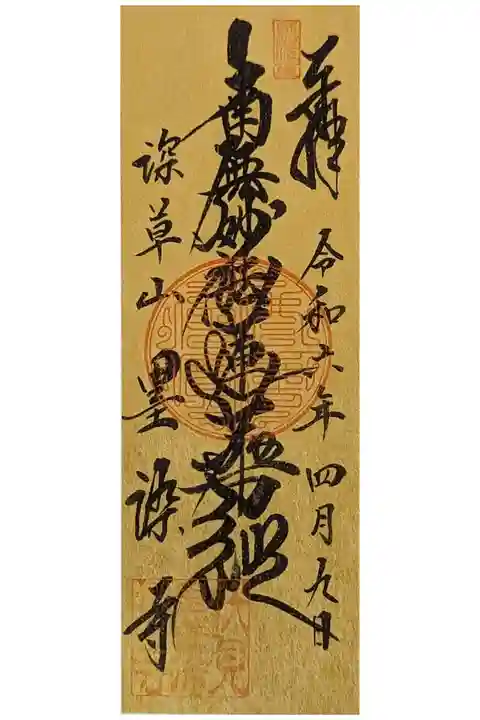 奉拝 令和六年四月九日
南無妙法蓮華経
深草山 墨染寺